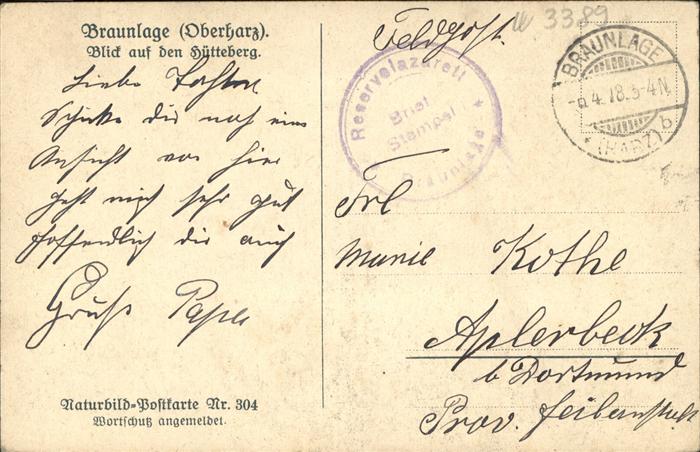 Braunlage (Oberharz).
Blick auf den Hütteberg.
Liebe Tochter
Schicke dir noch eine
Ansicht von hier
geht mich sehr gut
hoffendlich dir auch
Gruß Papa
Naturbild-Postkarte Nr. 304
Wortschutz angemeldet.
Feldpost.
3389
Reservelazarett
Brief
Stempel
Braunlage
BRAUNLAGE
4.18.3-4N.
* (HARZ) b
Frl
Marie Kothe
Aplerbeck
b Dortmund
Prov.